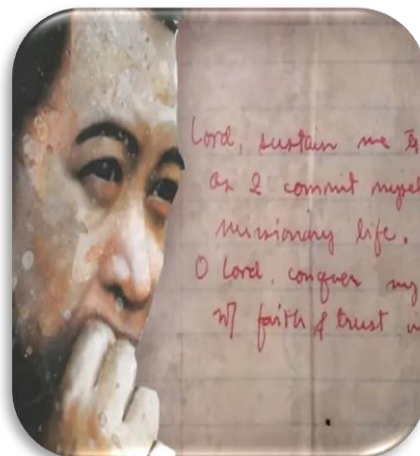 Lord, sustain me
as I commit myself
missionary life.
O Lord, conquer my
w/ faith & trust in